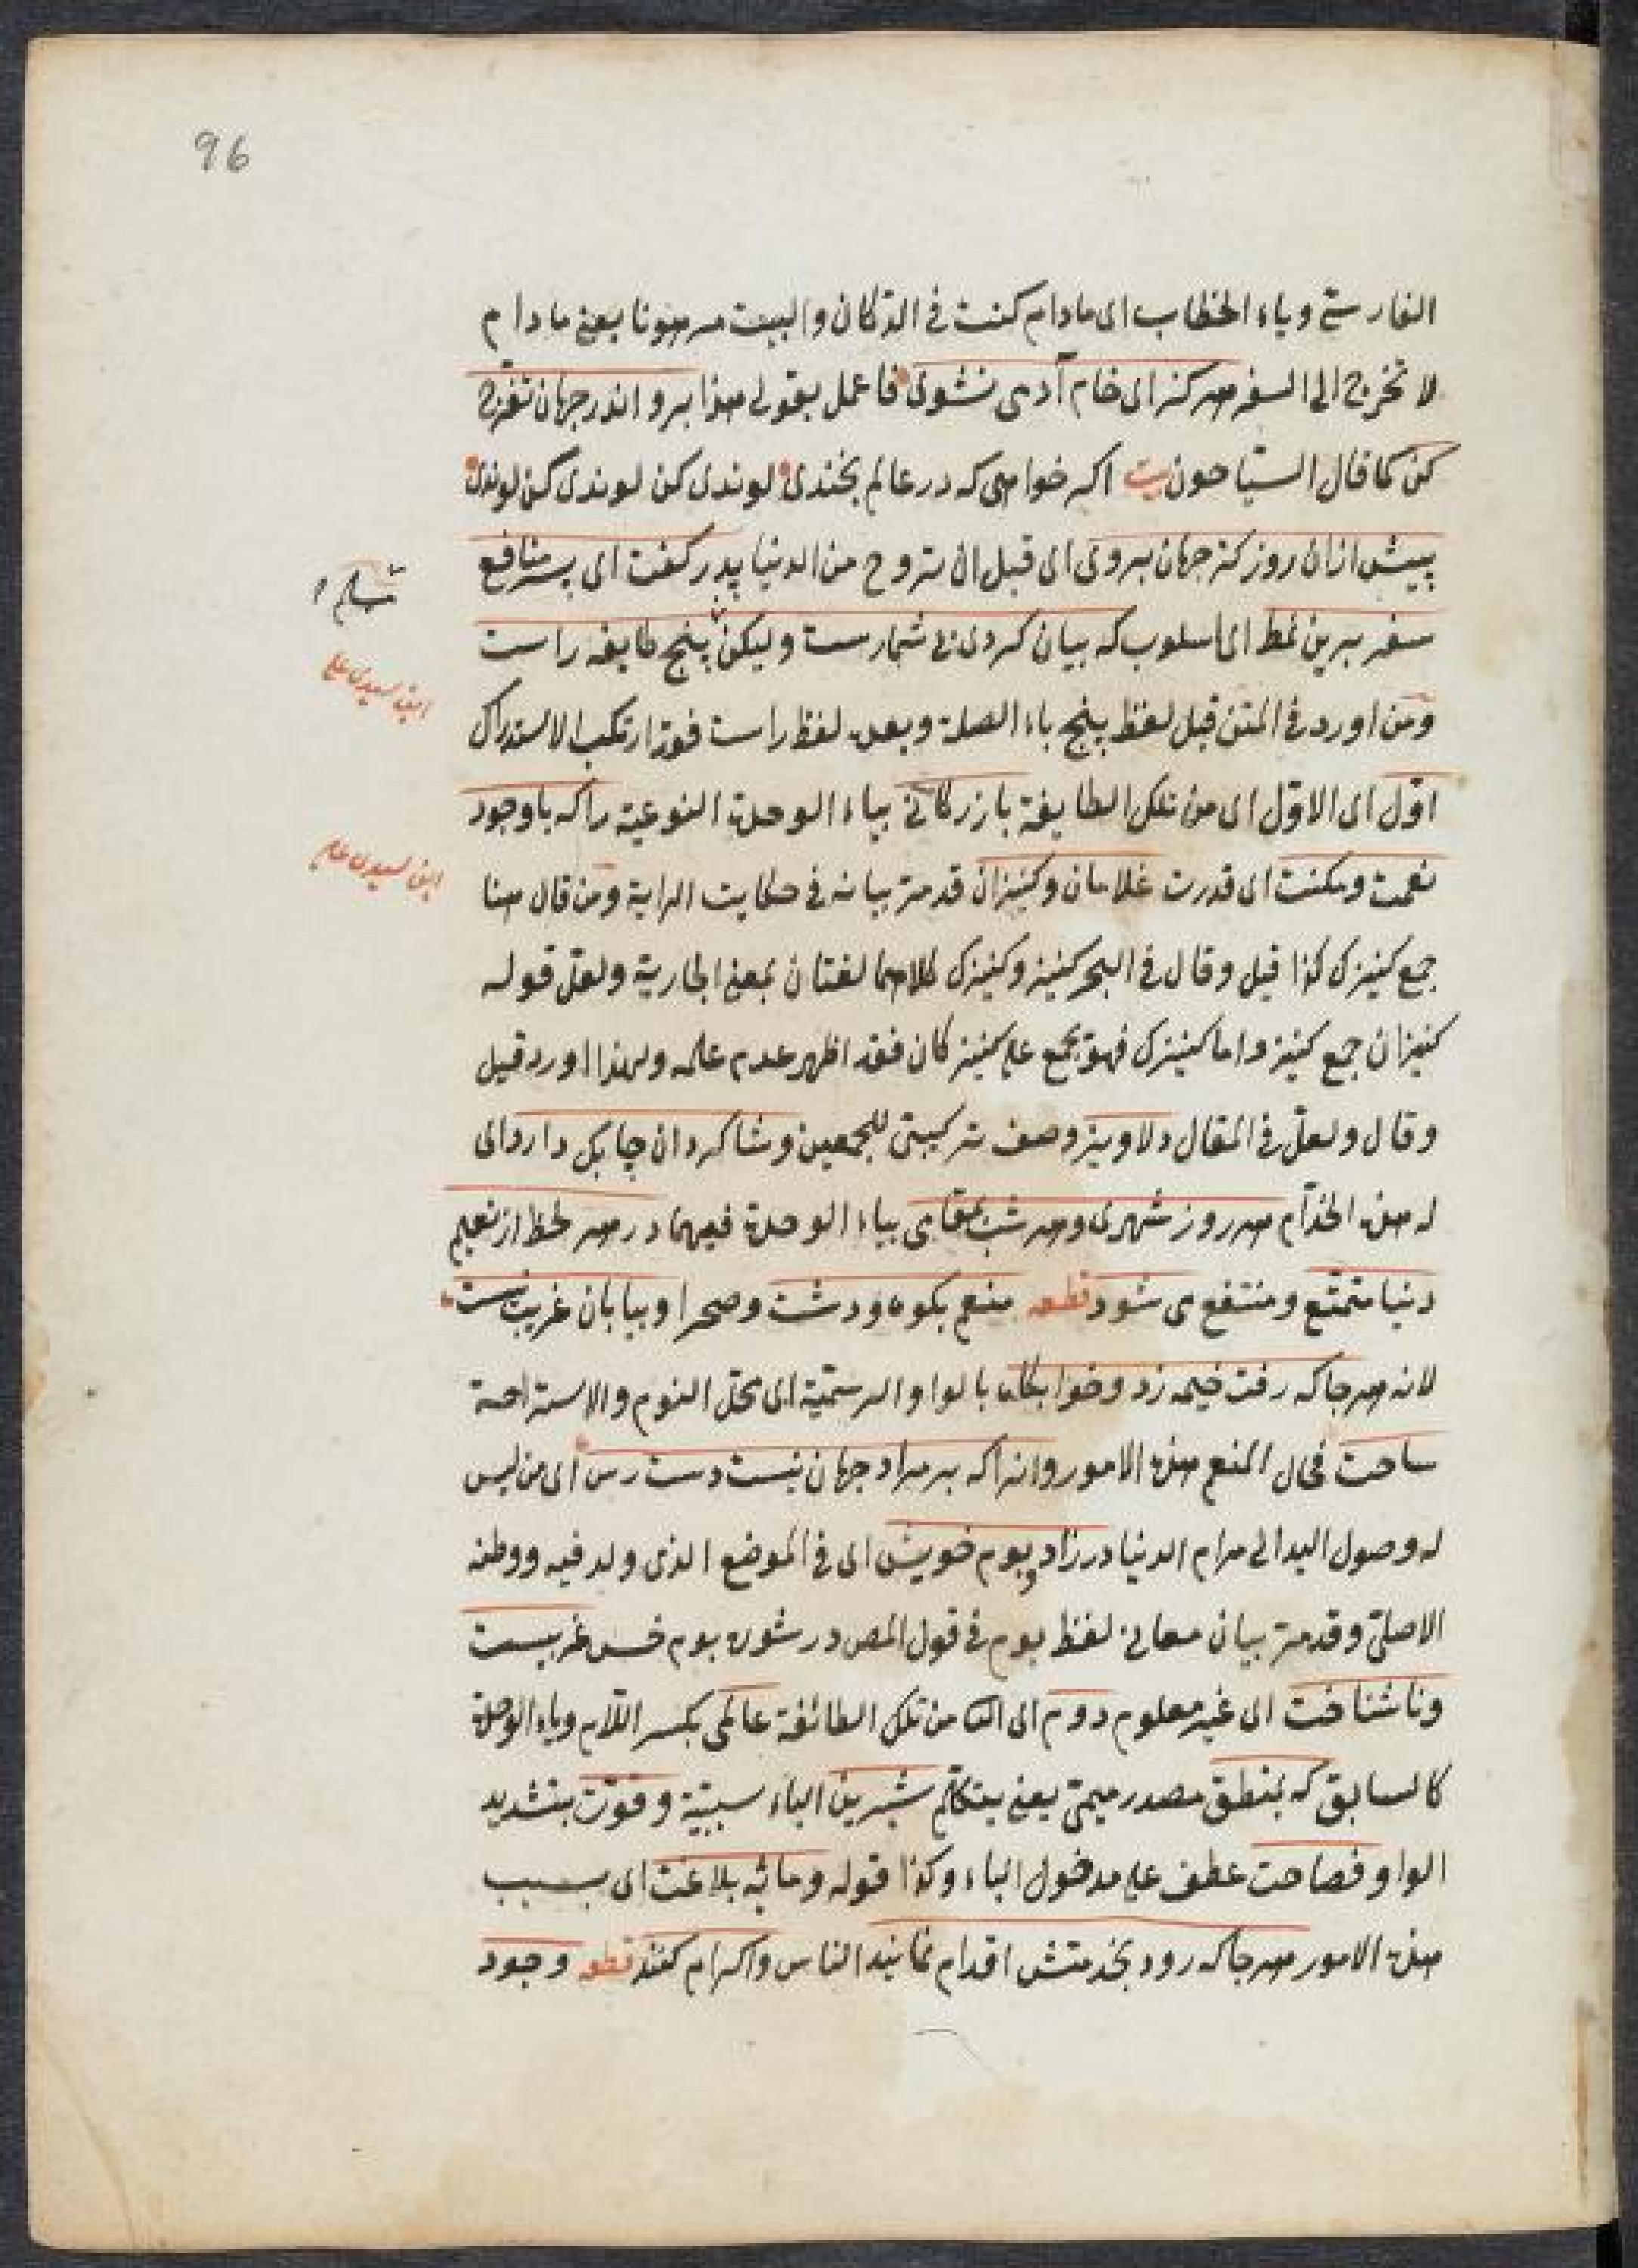 96
الفارستى وياء الخطاب اى مادام كنت فى الدكان والبيت مرهونا يعنى مادام
لا تخرج الى السفر هركز اى خام آدمى نشوى فاعمل بقولى هذا برو اندر جهان تفرج
كن كما قال السياحون بيت اكر خواهى كه در عالم بخندى لوندى كن لوندى كن لوندى
پيش ازان روز كز جهان بروى اى قبل ان تروح من الدنيا پدر كفت اى پسر منافع
سفر برين نمط اى اسلوب كه بيان كردى بى شمارست وليكن پنج طايفه راست
ومن اورد فى المتن قبل لفظ پنج باء الصلة وبعده لفظ راست فقد ارتكب الاستدراك
اوّل اى الاوّل اى من تلك الطايفة بازركانى بياء الوحدة النوعية راكه باوجود
نعمت ومكنت اى قدرت غلامان وكنيزان قد مرّ بيانه فى حكايت الراية ومن قال هنا
جمع كنيزك كذا قيل وقال فى البحر كنيز وكنيزك كلاهما لغتان بمعنى الجارية ولعلّ قوله
كنيزان جمع كنيز واما كنيزك فهو يجمع على كنيزكان فقد اظهر عدم علمه ولهذا اورد قيل
وقال ولعلّ فى المقال دلاويز وصف تركيبى للجمعين وشاكردان چابك دارد اى
له هذه الخدّام هر روز شهرى وهر شب مقامى بياء الوحدة فيهما در هر لحظه از نعيم
دنيا متمتع ومنتفع مى شود قطعه منعم بكوه ودشت وصحرا وبيابان غريب نيست
لانه هر جا كه رفت خيمه زد وخوابكاه بالواو الرسمية اى محل النوم والاستراحة
ساخت فحال المنعم هذه الامور وانراكه بر مراد جهان نيست دست رس اى من ليس
له وصول اليد الى مرام الدنيا در زاد وبوم خويش اى فى الموضع الذى ولد فيه ووطنه
الاصلى وقد مرّ بيان معانى لفظ بوم فى قول المص در شوره بوم خس غريبست
وناشناخت اى غير معلوم دوم اى الثا من تلك الطائفة عالمى بكسر اللام وياء الوحدة
كالسابق كه بمنطق مصدر ميمى يعنى بتكلم شيرين الباء سببية وقوّت بتشديد
الواو فصاحت عطف على مدخول الباء وكذا قوله ومائه بلاغت اى بسبب
هذه الامور هر جا كه رود بخدمتش اقدام نمايند الناس واكرام كنند قطعه وجود